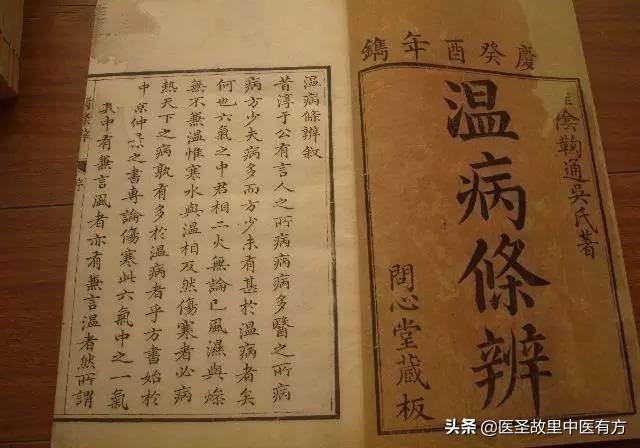 慶癸酉年鐫
陰鞠通吳氏著
温病條辨
問心堂藏板
温病條辨叙
昔淳于公有言人之所病病病多醫之所病
病方少夫病多而方少未有甚於温病者矣
何也六氣之中君相二火無論已風濕與燥
無不兼温惟寒水與温相反然傷寒者必病
熱天下之病孰有多於温病者乎方書始於
仲景仲景之書專論傷寒此六氣中之一氣
其中有兼言風者亦有兼言温者然所謂
條辨
头条 @医圣故里中医有方